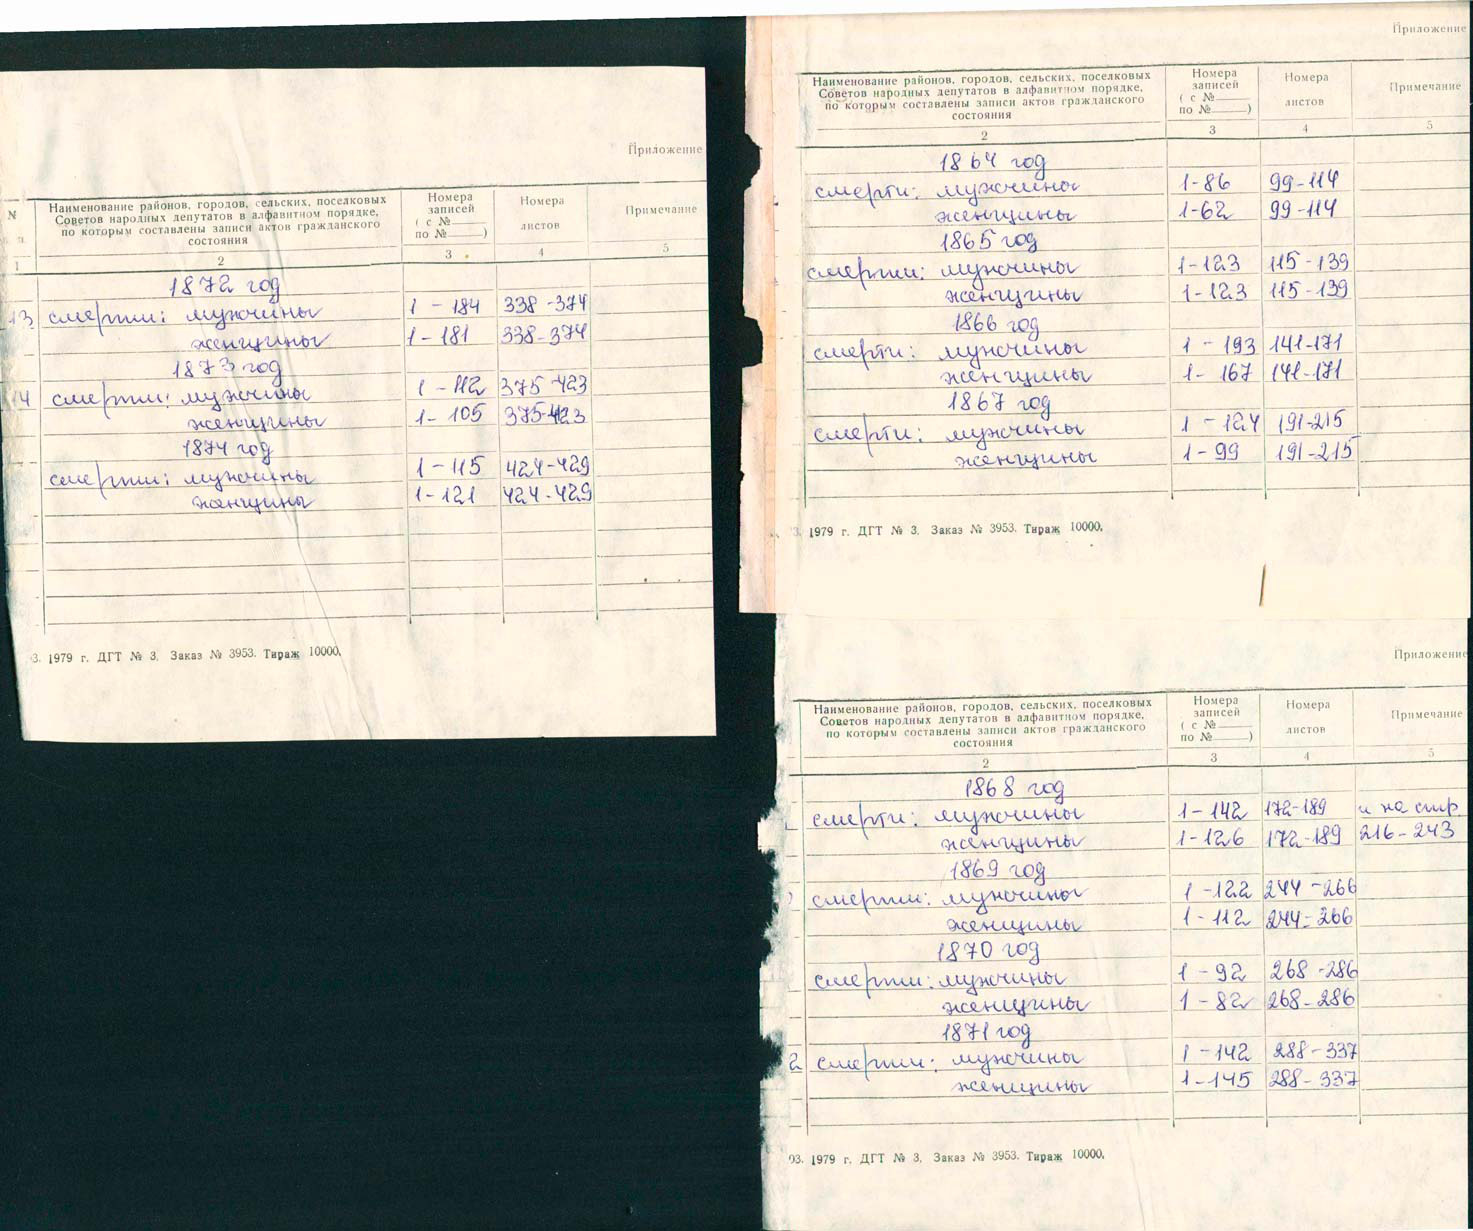 Приложение
N
Наименование районов, городов, сельских, поселковых
Советов народных депутатов в алфавитном порядке,
по которым составлены записи актов гражданского
состояния
Номера
записей
( с №
по № )
Номера
листов
Примечание
1 2 3 4 5
1872 год
13 смерти: мужчины 1 - 184 338-374
женщины 1 - 181 338-374
1873 год
14 смерти: мужчины 1 - 112 375-423
женщины 1 - 105 375-423
1874 год
смерти: мужчины 1 - 115 424-429
женщины 1 - 121 424-429
3. 1979 г. ДГТ № 3. Заказ № 3953. Тираж 10000.
Приложение
Наименование районов, городов, сельских, поселковых
Советов народных депутатов в алфавитном порядке,
по которым составлены записи актов гражданского
состояния
Номера
записей
( с №
по № )
Номера
листов
Примечание
2 3 4 5
1864 год
смерти: мужчины 1-86 99-114
женщины 1-62 99-114
1865 год
смерти: мужчины 1-123 115-139
женщины 1-123 115-139
1866 год
смерти: мужчины 1 - 193 141-171
женщины 1 - 167 141-171
1867 год
смерти: мужчины 1 - 124 191-215
женщины 1 - 99 191-215
3. 1979 г. ДГТ № 3. Заказ № 3953. Тираж 10000.
Приложение
Наименование районов, городов, сельских, поселковых
Советов народных депутатов в алфавитном порядке,
по которым составлены записи актов гражданского
состояния
Номера
записей
( с №
по № )
Номера
листов
Примечание
2 3 4 5
1868 год
смерти: мужчины 1-142 172-189 и на стр.
женщины 1-126 172-189 216-243
1869 год
смерти: мужчины 1 - 122 244-266
женщины 1 - 112 244-266
1870 год
смерти: мужчины 1 - 92 268-286
женщины 1 - 82 268-286
1871 год
2 смерти: мужчины 1 - 142 288-337
женщины 1 - 145 288-337
03. 1979 г. ДГТ № 3. Заказ № 3953. Тираж 10000.